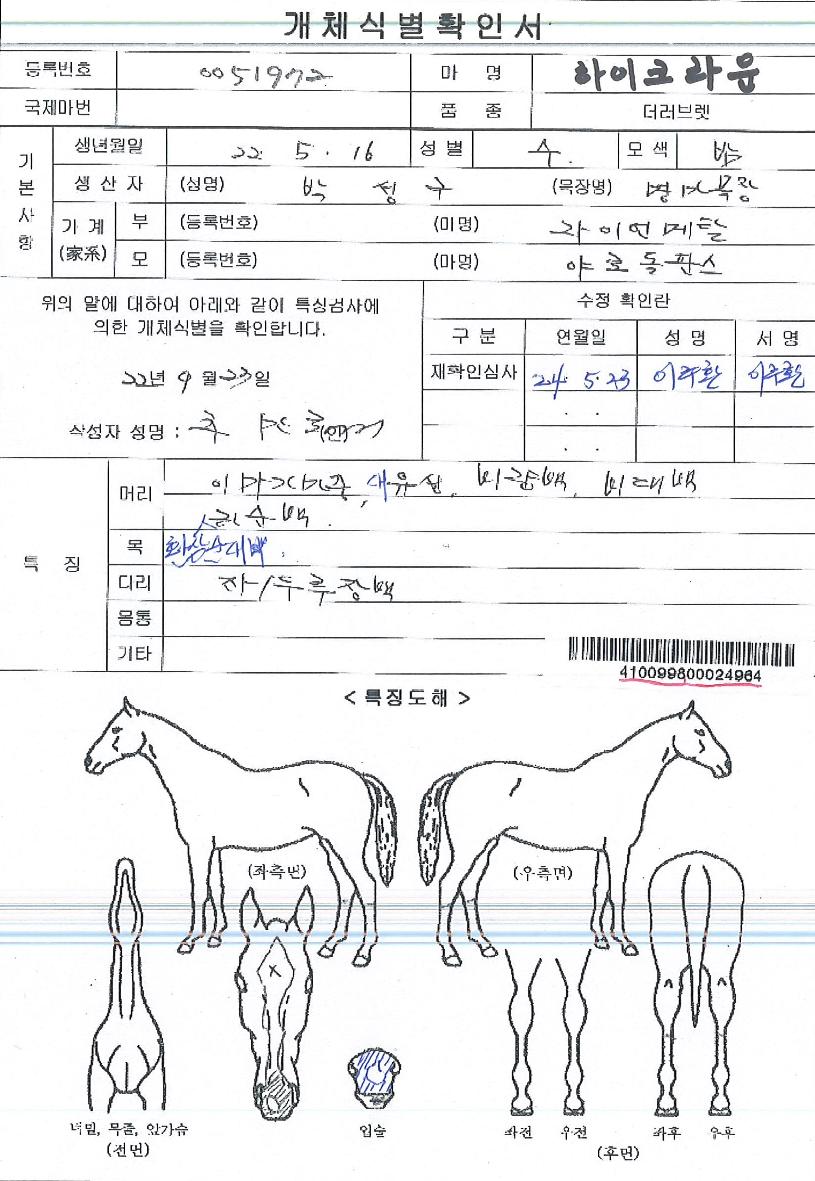 개체식별확인서
등록번호 0051972 마 명 하이크라운
국제마번 품 종 더러브렛
기본사항
생년월일 22. 5. 16 성별 수. 모색 밤
생산자 (성명) 박 성 구 (목장명) 명마목장
가계(家系) 부 (등록번호) (마명) 라이언메탈
모 (등록번호) (마명) 야호돌판스
위의 말에 대하여 아래와 같이 특징검사에
의한 개체식별을 확인합니다.
22년 9월 23일
작성자 성명 : (인)
수정 확인란
구분 연월일 성명 서명
재확인심사 24. 5. 23 이주환 이주환
. .
. .
특 징
머리 비대백
목
다리 좌/우후장백
몸통
기타
410099800024964
< 특징도해 >
(좌측면) (우측면)
턱밑, 목줄, 앞가슴
(전면)
입술
좌전 우전 좌후 우후
(후면)